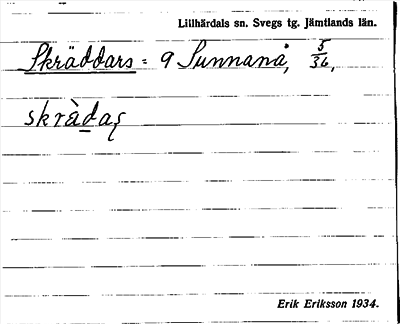 Lillhärdals sn. Svegs tg. Jämtlands län.
Skräddars = 9 Sunnanå, 5/36,
skrädaʂ
Erik Eriksson 1934.